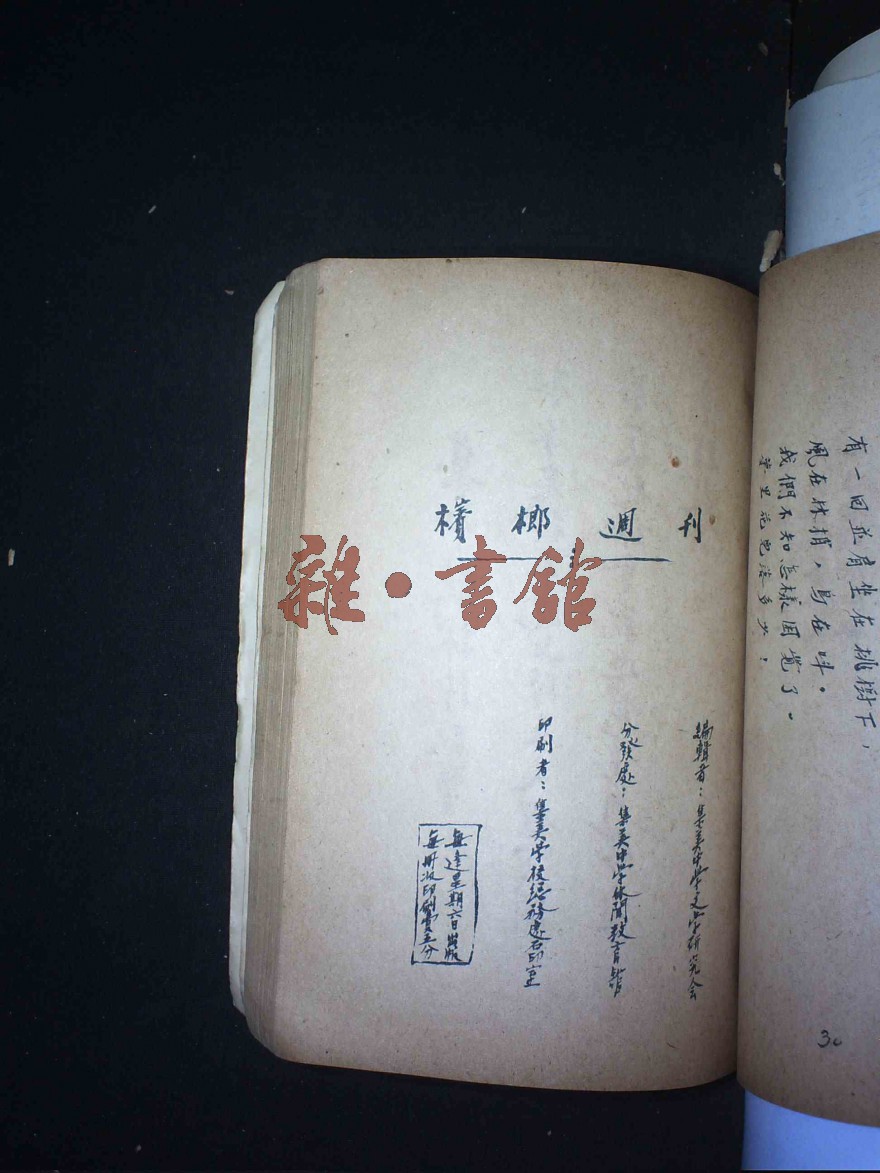 有一回並肩坐在桃樹下，
風在林梢，鳥在叫。
我們不知怎樣困覺了。
夢里花兒落多少！
30
檳榔週刊
編輯者：集美中學文學研究會
分發處：集美中學休閒教育館
印刷者：集美學校總務處石印室
每逢星期六日出版
每冊收印刷費五分
雜·書館